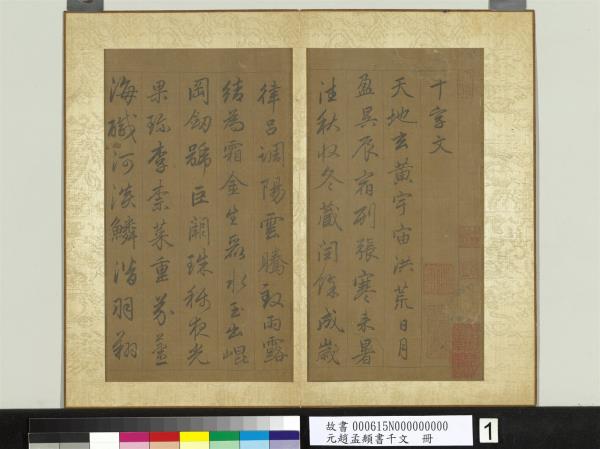 千字文
天地玄黃宇宙洪荒日月
盈昃辰宿列張寒來暑
往秋收冬藏閏餘成歲
律呂調陽雲騰致雨露
結為霜金生麗水玉出崐
岡劒號巨闕珠稱夜光
果珍李柰菜重芥薑
海醎河淡鱗潛羽翔
故書 000615N000000000
元趙孟頫書千文 冊
1